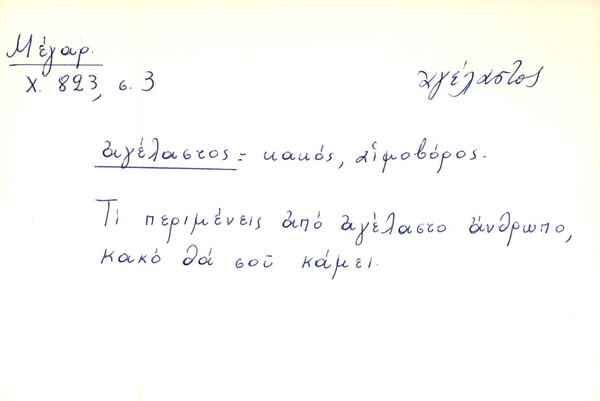 Μέγαρ.
Χ. 823, σ. 3
ἀγέλαστος
ἀγέλαστος = κακός, αἱμοβόρος.
Τί περιμένεις ἀπό ἀγέλαστο ἄνθρωπο,
κακό θά σοῦ κάμει.